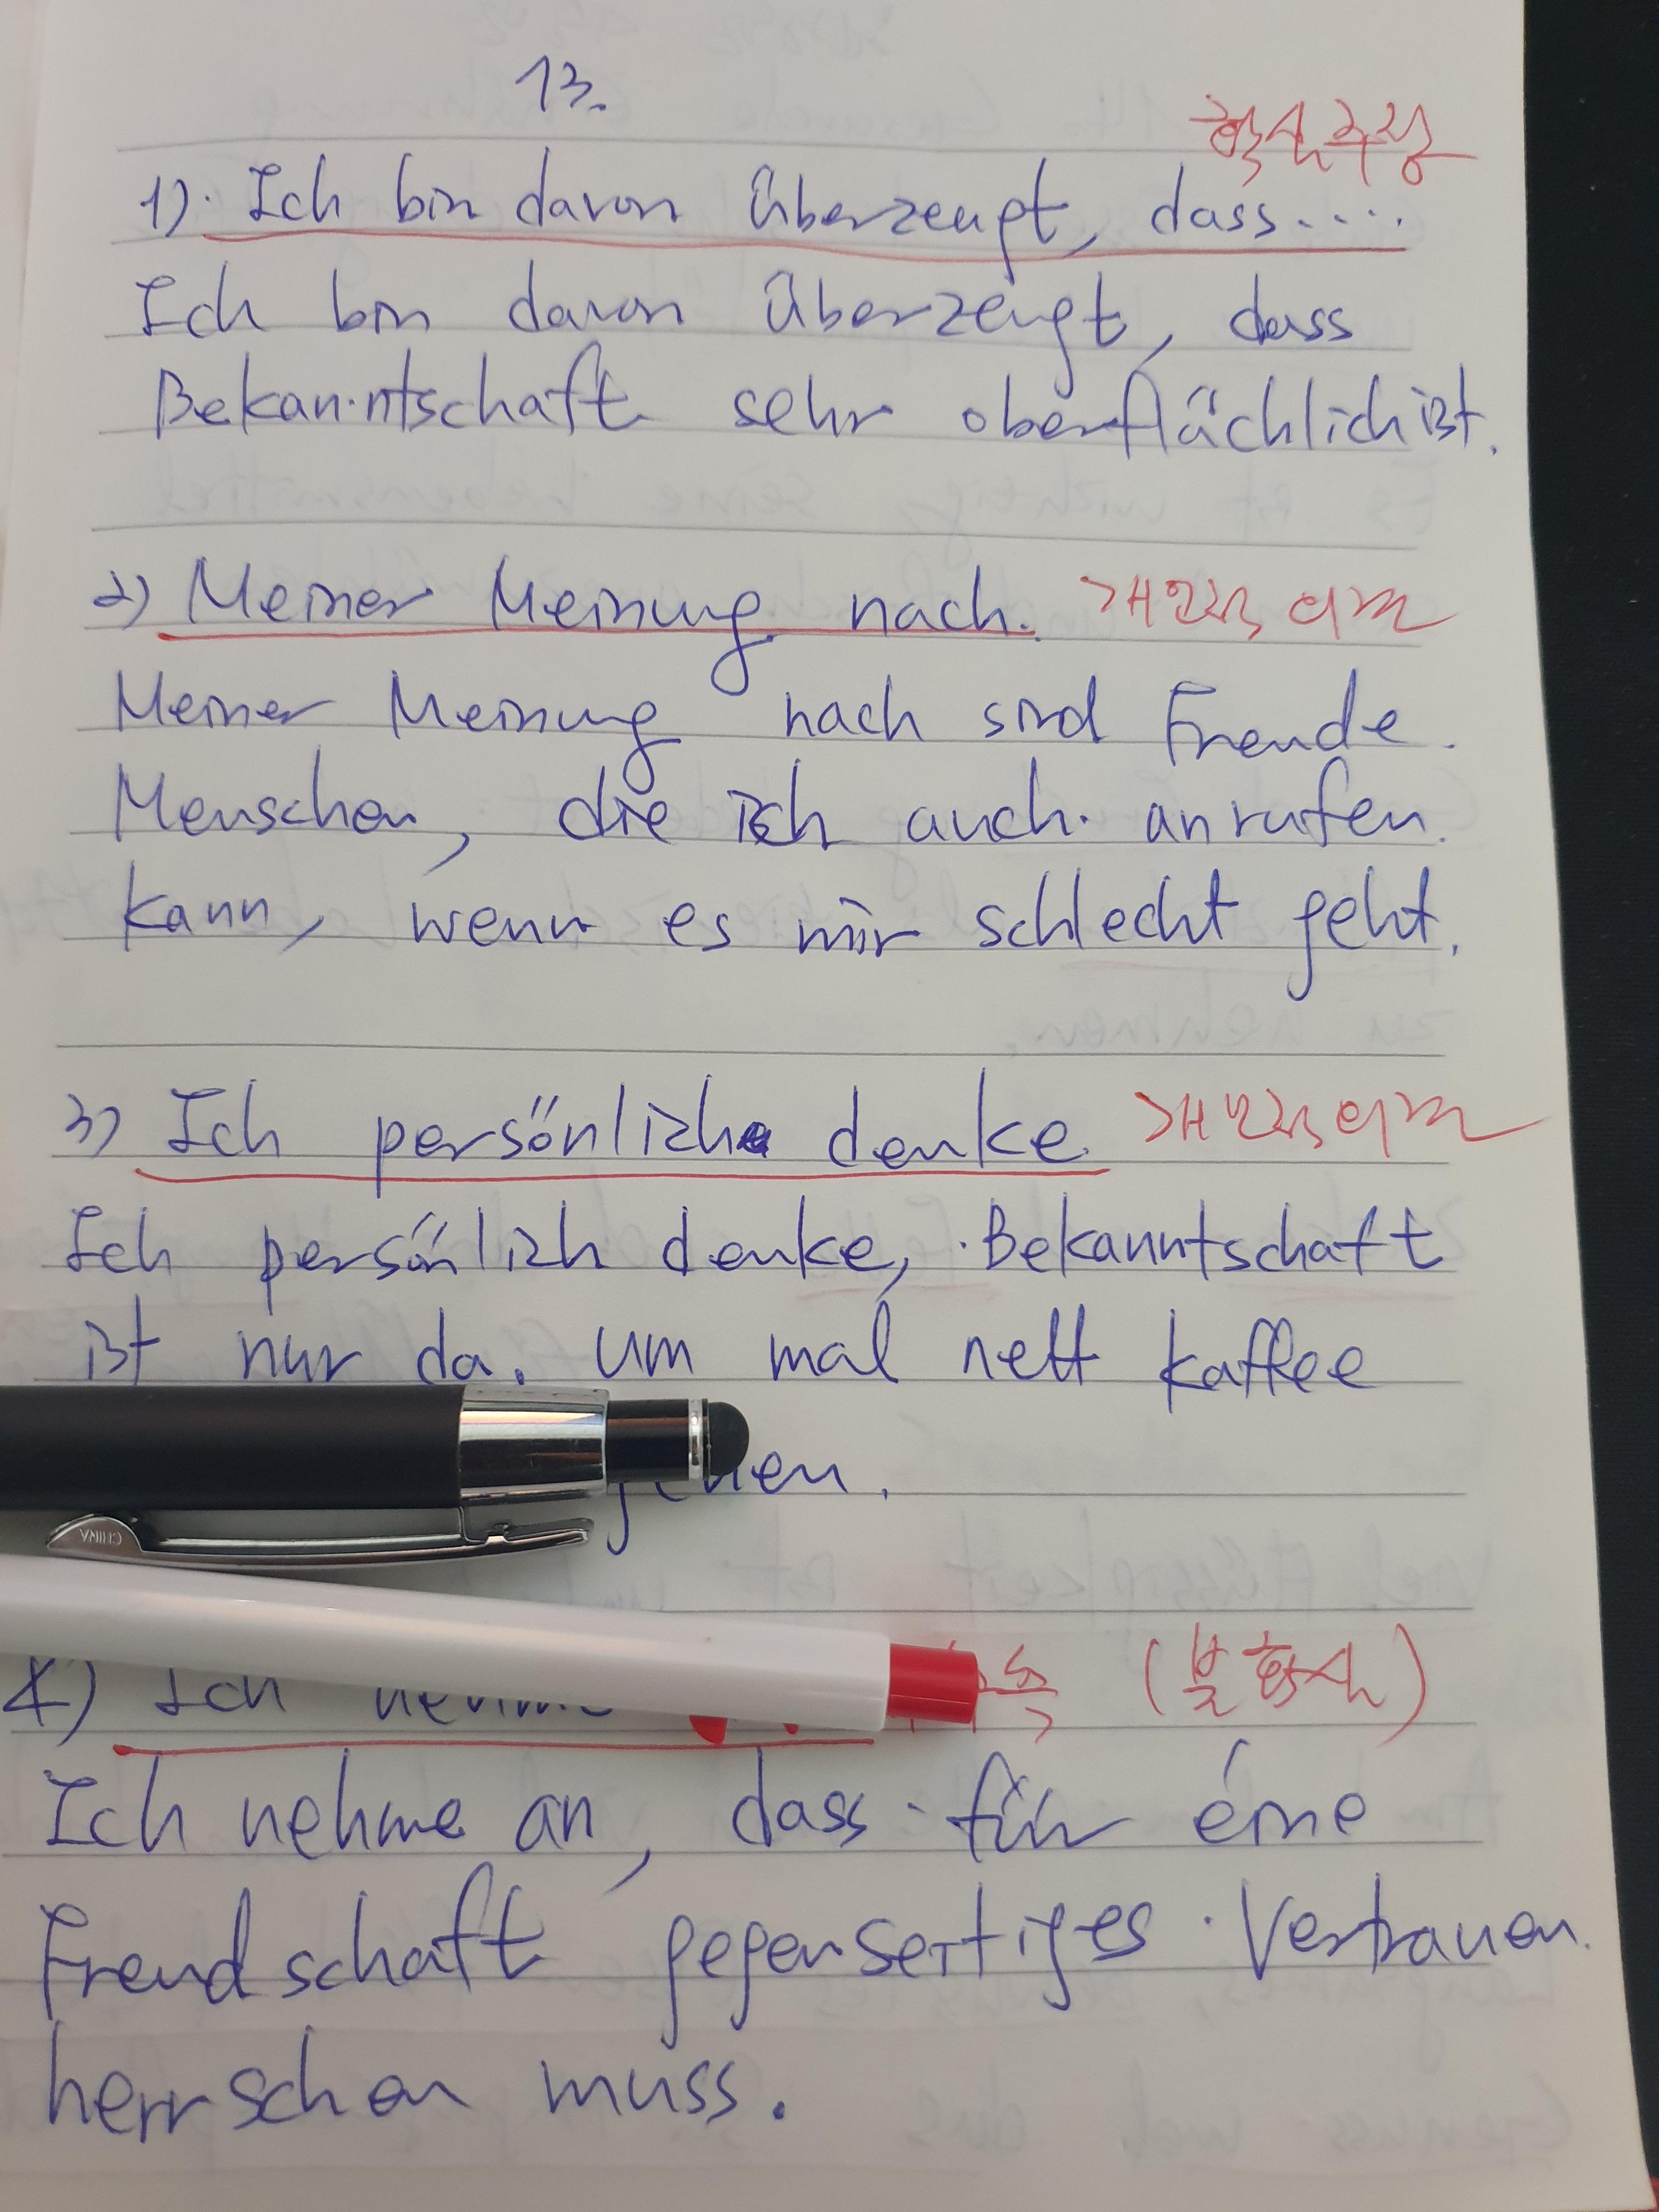 13.
확신주장
1). Ich bin davon überzeugt, dass....
Ich bin davon überzeugt, dass
Bekanntschaft sehr oberflächlich ist.
2) Meiner Meinung nach. 개인적 의견
Meiner Meinung nach sind Freude
Menschen, die ich auch anrufen
kann, wenn es mir schlecht geht.
3) Ich persönlich denke 개인적 의견
Ich persönlich denke, Bekanntschaft
ist nur da. um mal nett kaffee
4) Ich nehme (불확신)
Ich nehme an, dass für eine
Freudschaft gegenseitiges Vertrauen
herrschen muss.
CHINA